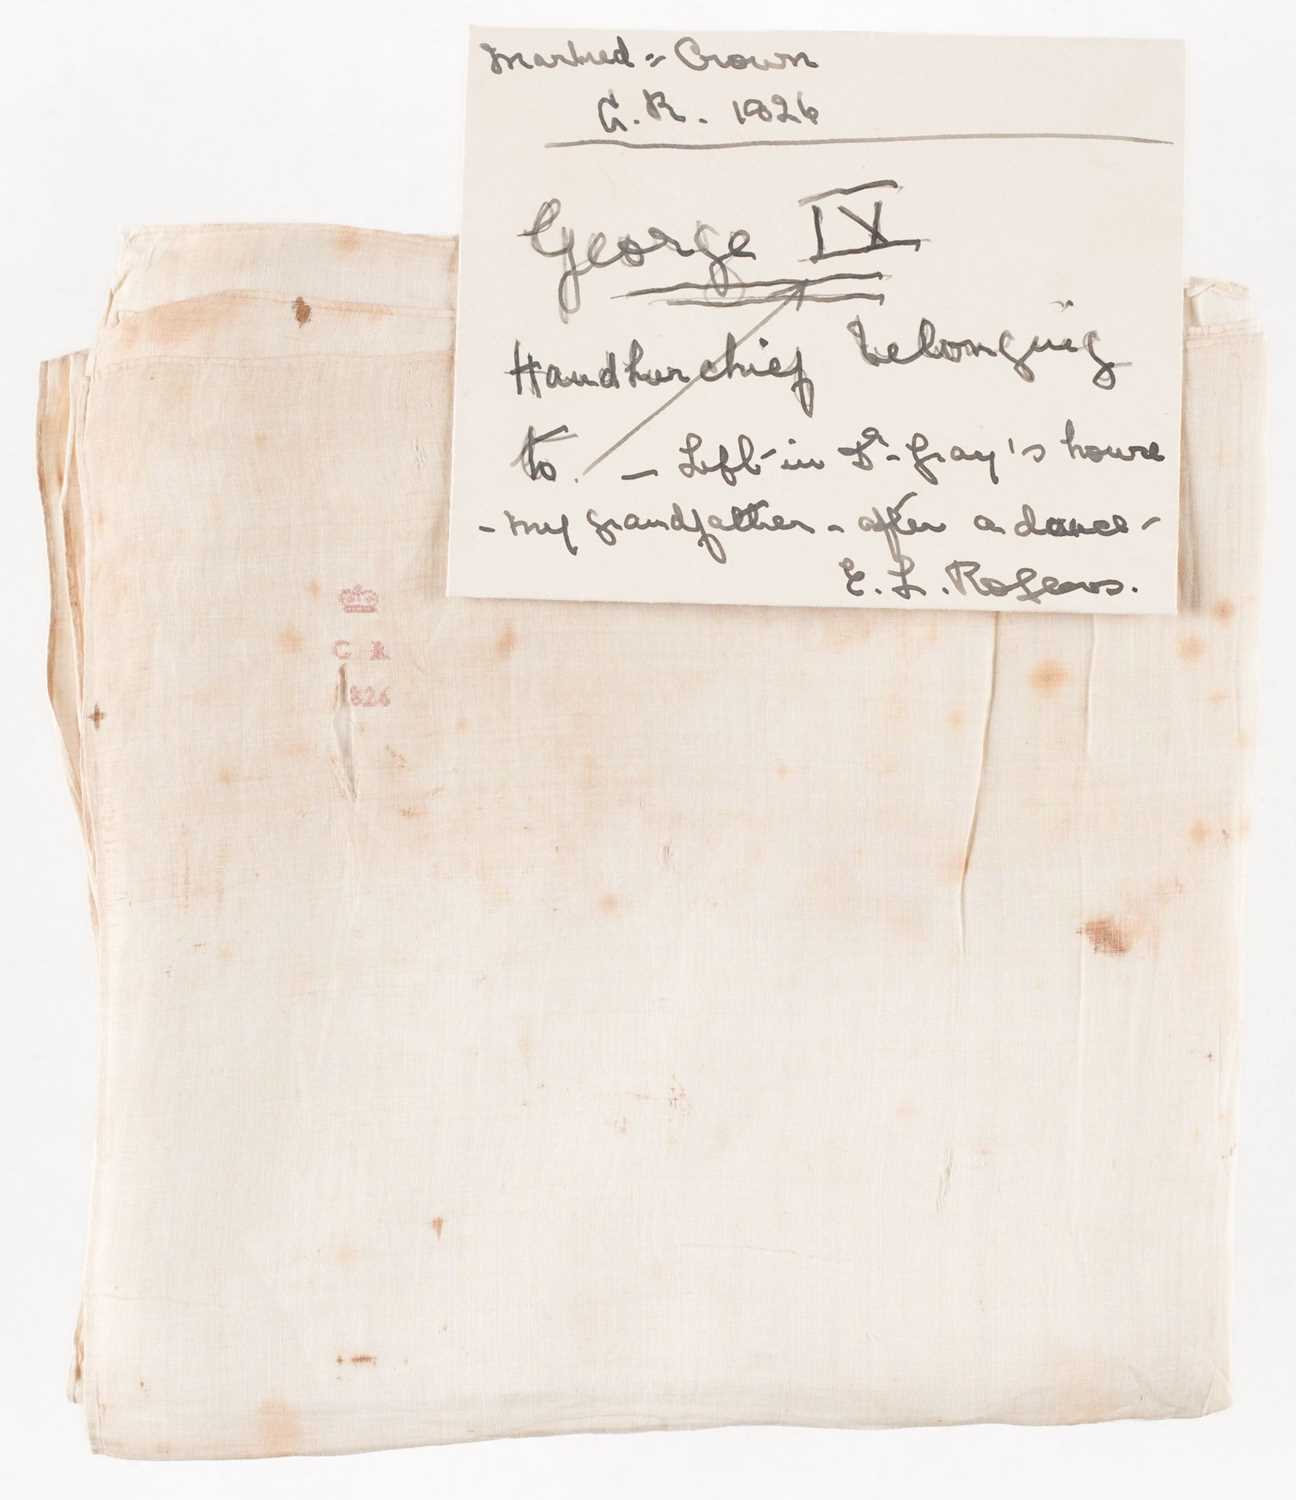 Marked :- Crown
G.R. 1826
George IV
Handkurchief belonging
to. - Left in Dr. Gray's house
- my grandfather - after a dance -
E. L. Rogers.
G R
1826